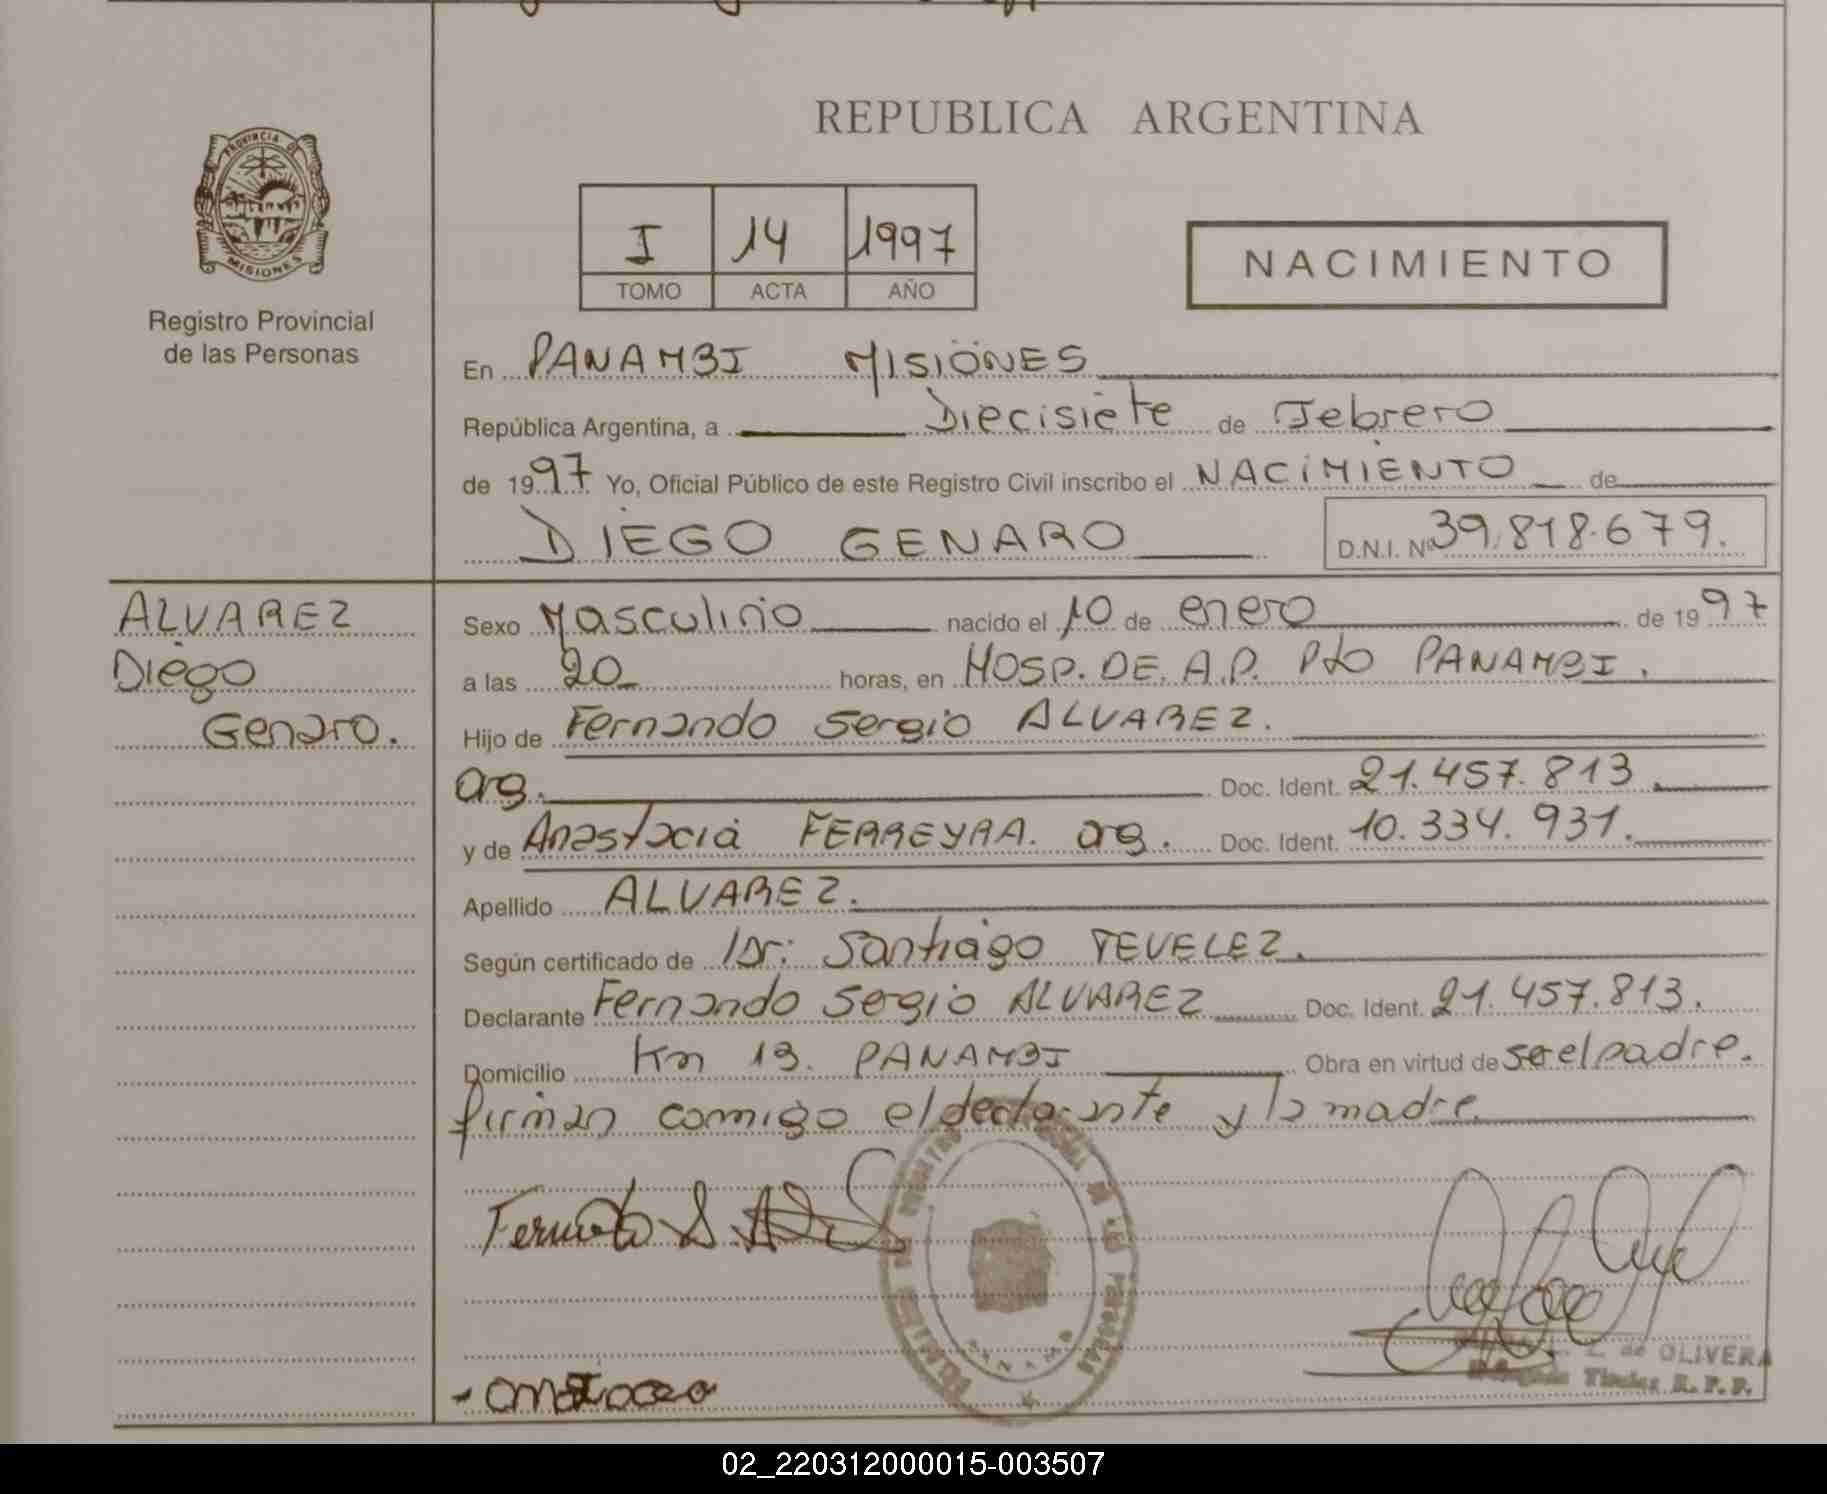 REPUBLICA ARGENTINA
PROVINCIA DE
MISIONES
Registro Provincial
de las Personas
I 14 1997
TOMO ACTA AÑO
NACIMIENTO
En PANAMBI MISIONES
República Argentina, a Diecisiete de Febrero
de 1997 Yo, Oficial Público de este Registro Civil inscribo el NACIMIENTO de
DIEGO GENARO D.N.I. Nº 39.818.679.
ALVAREZ
Diego
Genaro.
Sexo Masculino nacido el 10 de enero de 1997
a las 20 horas, en HOSP. DE. A.P. Pto PANAMBI.
Hijo de Fernando Sergio ALVAREZ.
arg. Doc. Ident. 21.457.813.
y de Anastacia FERREYRA. arg. Doc. Ident. 10.334.931.
Apellido ALVAREZ.
Según certificado de Dr: Santiago TEVELEZ.
Declarante Fernando Sergio ALVAREZ Doc. Ident. 21.457.813.
Domicilio Km 13. PANAMBI Obra en virtud de ser el padre.
firman comigo el declarante y la madre.
Fernando S.
L. de OLIVERA
Titular R. P. P.
02_220312000015-003507